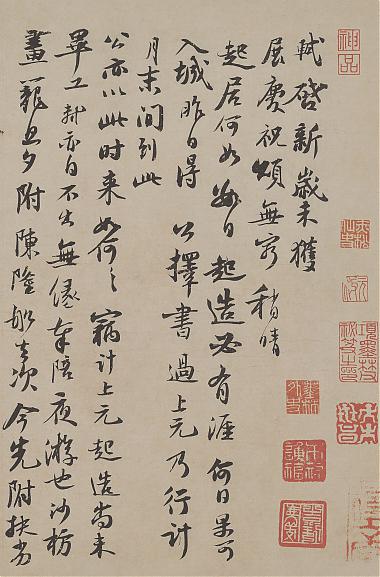 軾啓新歲未獲
展慶祝頌無窮稍晴
起居何如數日起造必有涯何日果可
入城昨日得公擇書過上元乃行計
月末間到此
公亦以此時來如何々竊計上元起造尚未
畢工軾亦自不出無緣奉陪夜游也沙枋
畫籠旦夕附陳隆船去次今先附扶劣
神品